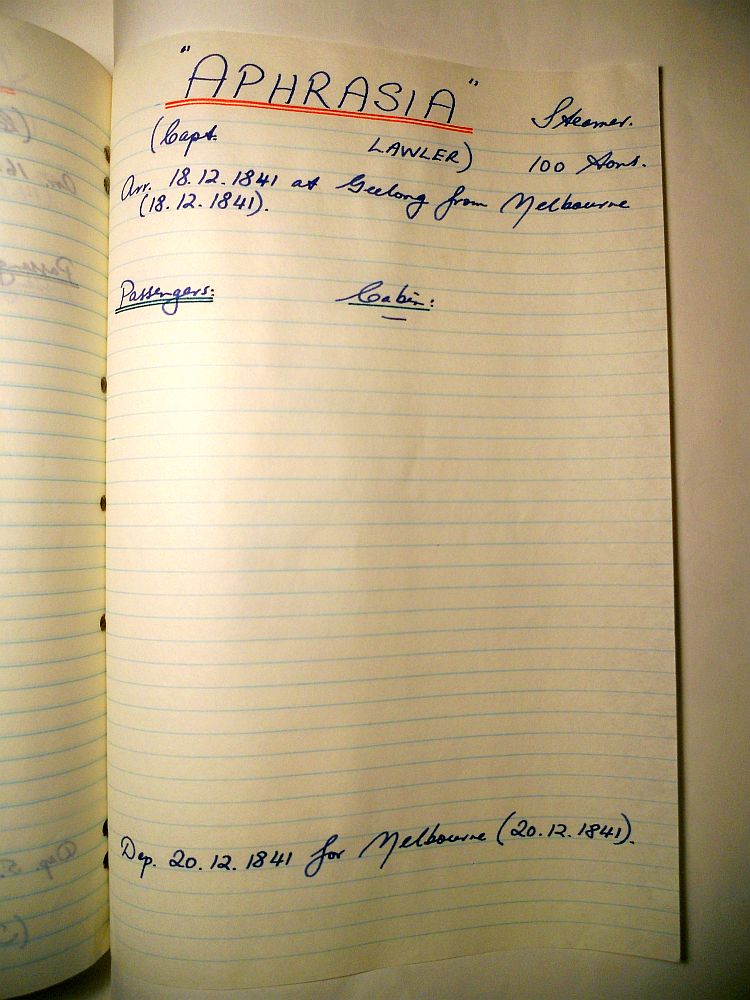 "APHRASIA" Steamer.
(Capt. LAWLER) 100 Tons.
Arr. 18.12.1841 at Geelong from Melbourne
(18.12.1841).
Passengers: Cabin:
—
Dep. 20.12.1841 for Melbourne (20.12.1841).